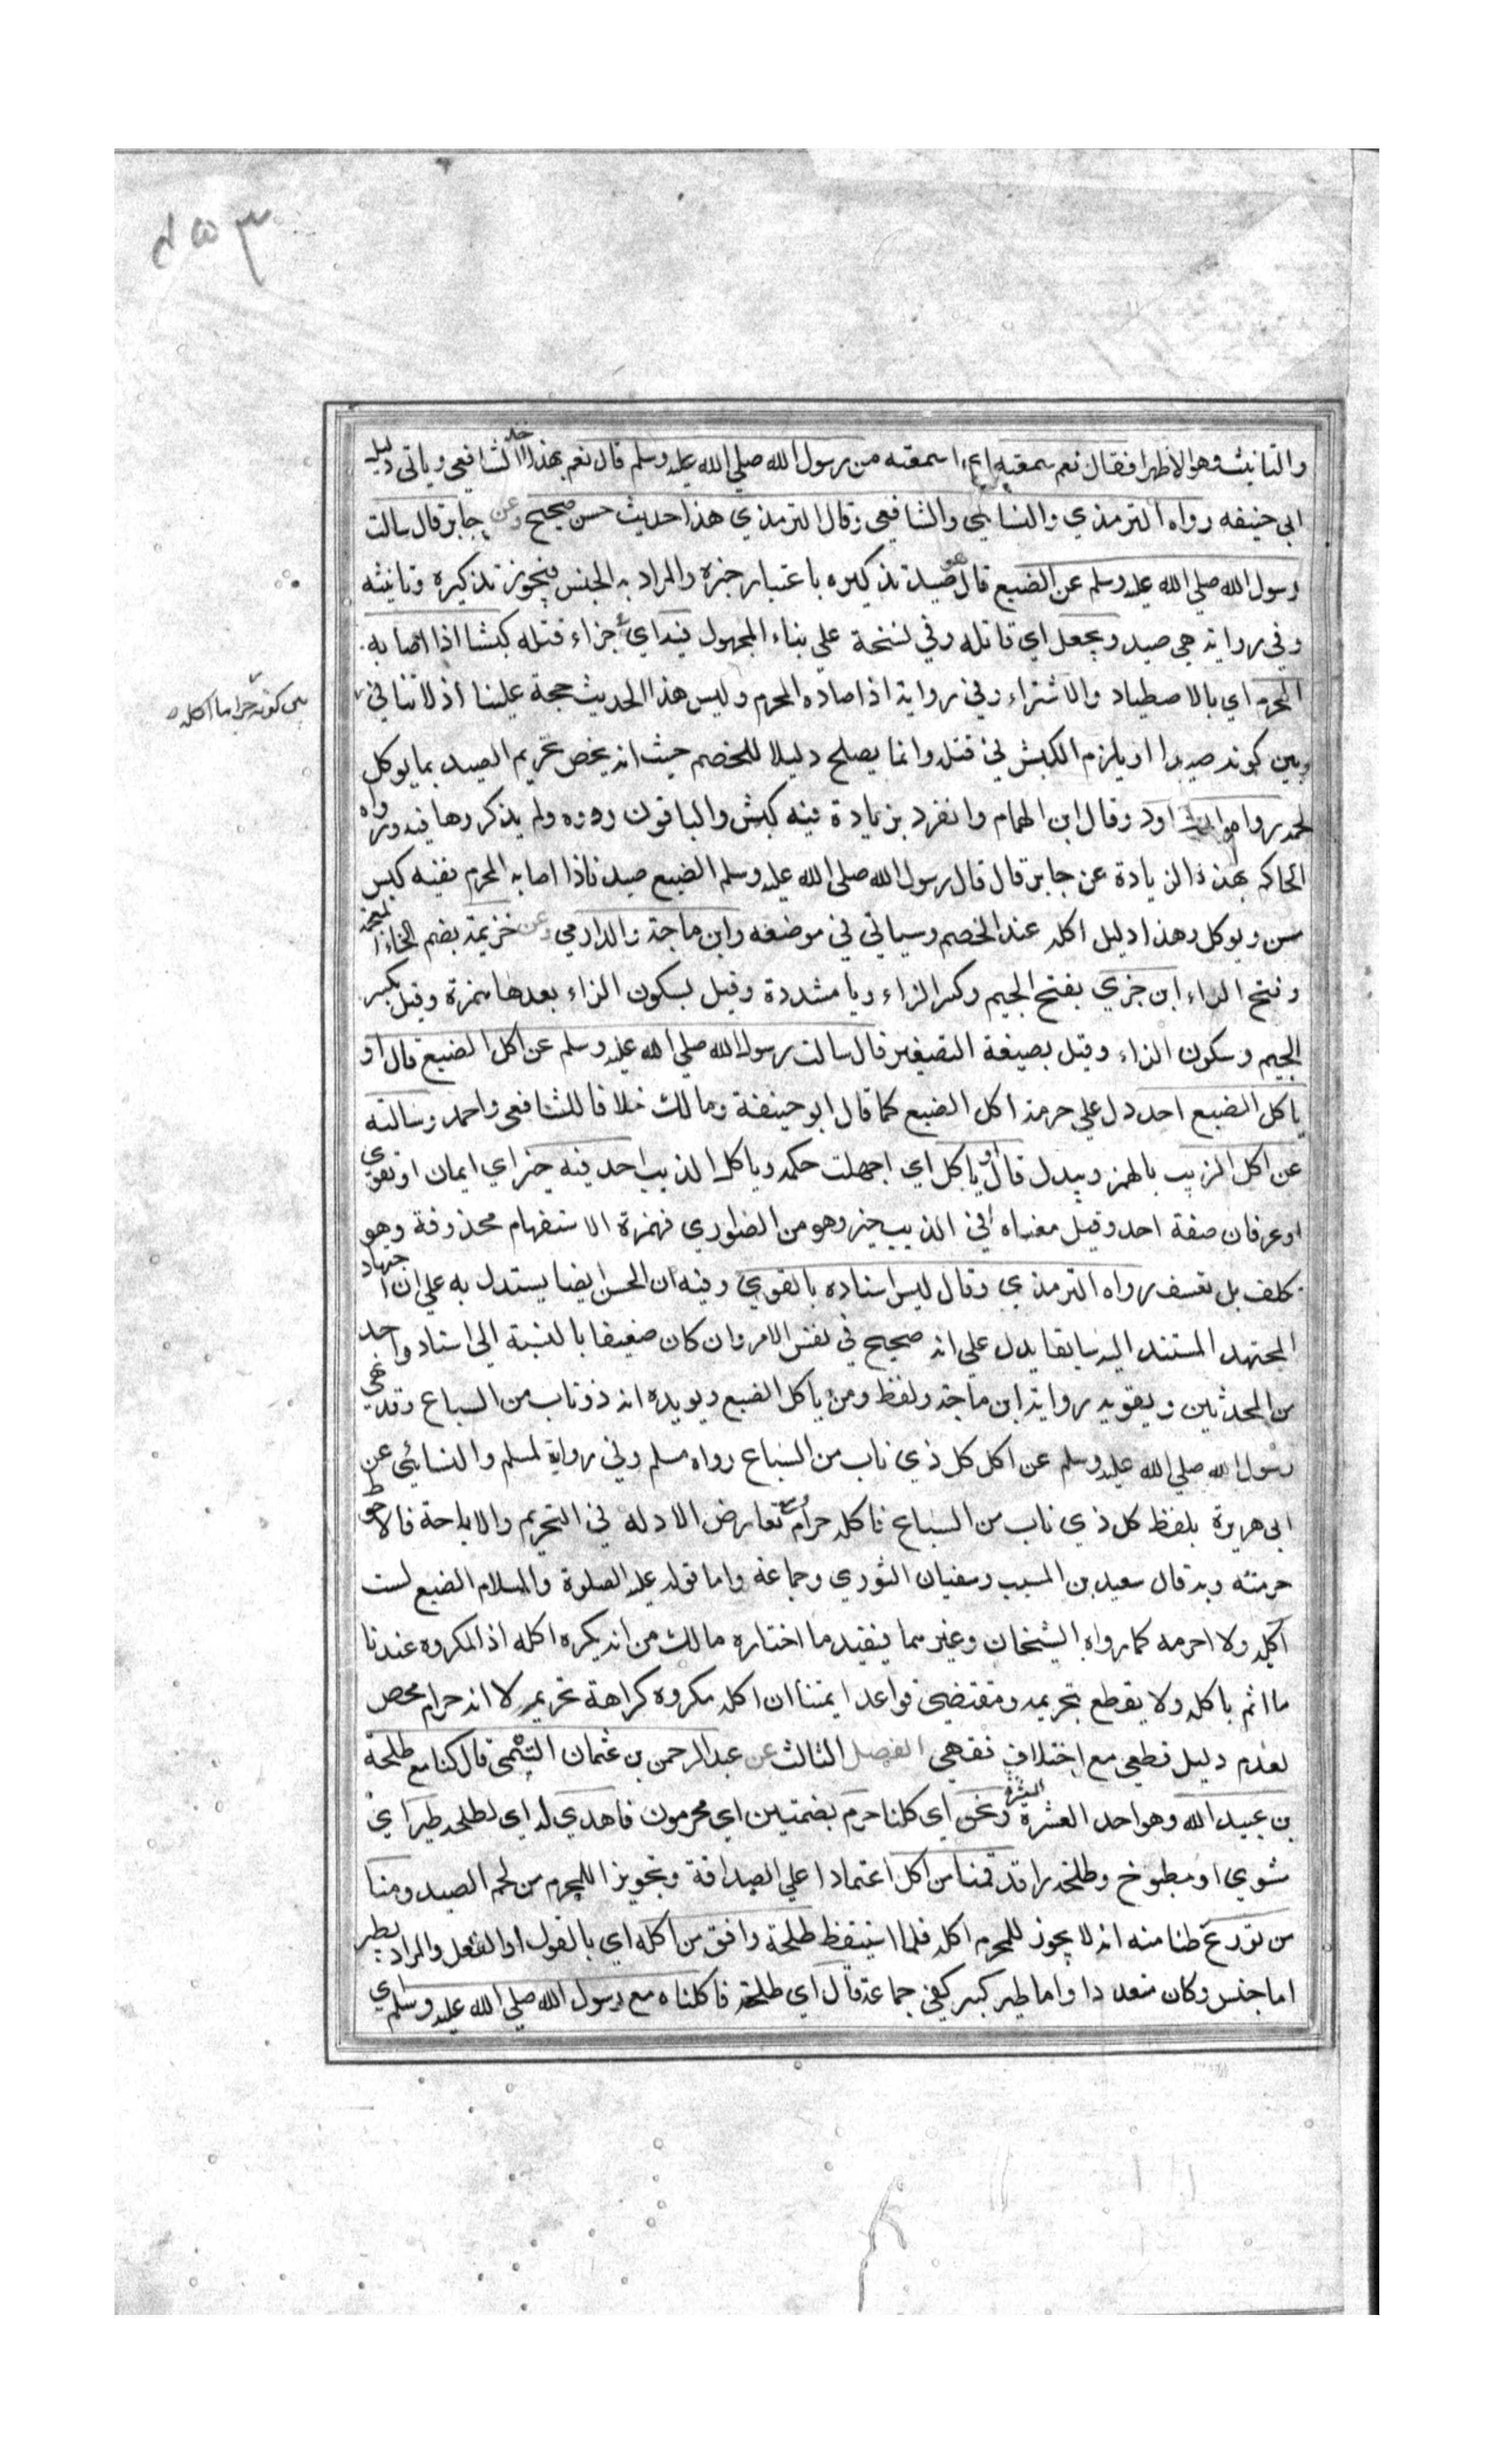 والتانيث وهو الاظهر افقال نعم سمعته اي اسمعته من رسول الله صلي الله عليه وسلم قال نعم بهذا اخذ الشافعي وياتي دليل
ابي حنيفه رواه الترمذي والنسايي والشافعي وقال الترمذي هذا حديث حسن صحيح وعن جابر قال سالت
رسول الله صلي الله عليه وسلم عن الضبع قال هو صيد تذكيره باعتبار خبره والمراد به الجنس فيجوز تذكيره وتانيثه
وفي رواية هي صيد ويجعل اي قاتله وفي نسخة علي بناء المجهول فيه اي جزاء قتله كبشا اذا اصابه
المحرم اي بالاصطياد والاشتراء وفي رواية اذا صاده المحرم وليس هذا الحديث حجة علينا اذ لا تنافي
بين كونه حراما اكله
وبين كونه صيدا او يلزم الكبش في قتله وانما يصلح دليلا للخصم حيث انه يخص تحريم الصيد بما يوكل
لحمه رواه ابو داود وقال ابن الهمام وانفرد بزيادة فيه كبش والباقون رووه ولم يذكروها فيه ورواه
الحاكم بهذه الزيادة عن جابر قال قال رسول الله صلي الله عليه وسلم الضبع صيد فاذا اصابه المحرم ففيه كبس
مسن ويوكل وهذا دليل اكله عند الخصم وسياتي في موضعه وابن ماجة والدارمي وعن خزيمة بضم الخاء المعجمة
وفتح الزاء ابن جزي بفتح الجيم وكسر الزاء ويا مشددة وقيل بسكون الزاء بعدها همزة وقيل بكسر
الجيم وسكون الزاء وقيل بصيغة التصغير قال سالت رسول الله صلي الله عليه وسلم عن اكل الضبع قال او
ياكل الضبع احد دل علي حرمة اكل الضبع كما قال ابو حنيفة ومالك خلافا للشافعي واحمد وسالته
عن اكل الزيب بالهمز ويبدل قال او ياكل اي اجهلت حكمه وياكل الذيب احد فيه خير اي ايمان او تقوي
او عرفان صفة احد وقيل معناه افي الذيب خير وهو من الضواري فهمزة الاستفهام محذوفة وهو
تكلف بل تعسف رواه الترمذي وقال ليس اسناده بالقوي وفيه ان الحسن ايضا يستدل به علي ان اجتهاد
المجتهد المستند اليه سابقا يدل علي انه صحيح في نفس الامر وان كان ضعيفا بالنسبة الي اسناد واحد
من المحدثين ويقويه رواية ابن ماجة ولفظه ومن ياكل الضبع ويويده انه ذو ناب من السباع وقد نهي
رسول الله صلي الله عليه وسلم عن اكل كل ذي ناب من السباع رواه مسلم وفي رواية لمسلم والنسائي عن
ابي هريرة بلفظ كل ذي ناب من السباع فاكله حرام ومع تعارض الادله في التحريم والاباحة فالاحوط
حرمته وبه قال سعيد بن المسيب وسفيان الثوري وجماعة واما قوله عليه الصلوة والسلام الضبع لست
اكله ولا احرمه كما رواه الشيخان وغيرهما فيفيد ما اختاره مالك من انه يكره اكله اذ المكروه عندنا
ما اثم باكله ولا يقطع بتحريمه ومقتضي قواعد ايمتنا ان اكله مكروه كراهة تحريم لا انه حرام محض
لعدم دليل قطعي مع اختلاف فقهي الفصل الثالث عن عبد الرحمن بن عثمان التيمي قال كنا مع طلحة
بن عبيد الله وهو احد العشرة المبشرة ونحن اي كلنا حرم بضمتين اي محرمون فاهدي له اي لطلحه طير اي
مشوي او مطبوخ وطلحة راقد فمنا من اكل اعتمادا علي الصداقة وتجويز اللمحرم من لحم الصيد ومنا
من تورع ظنا منه انه لا يجوز للمحرم اكله فلما استيقظ طلحة وافق من اكله اي بالقول او الفعل والمراد بطير
اما جنس وكان متعددا واما طير كبير كفي جماعة قال اي طلحة فاكلناه مع رسول الله صلي الله عليه وسلم اي